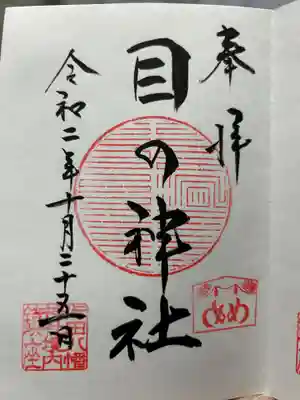 奉拝
目の神社
令和二年十月二十五日